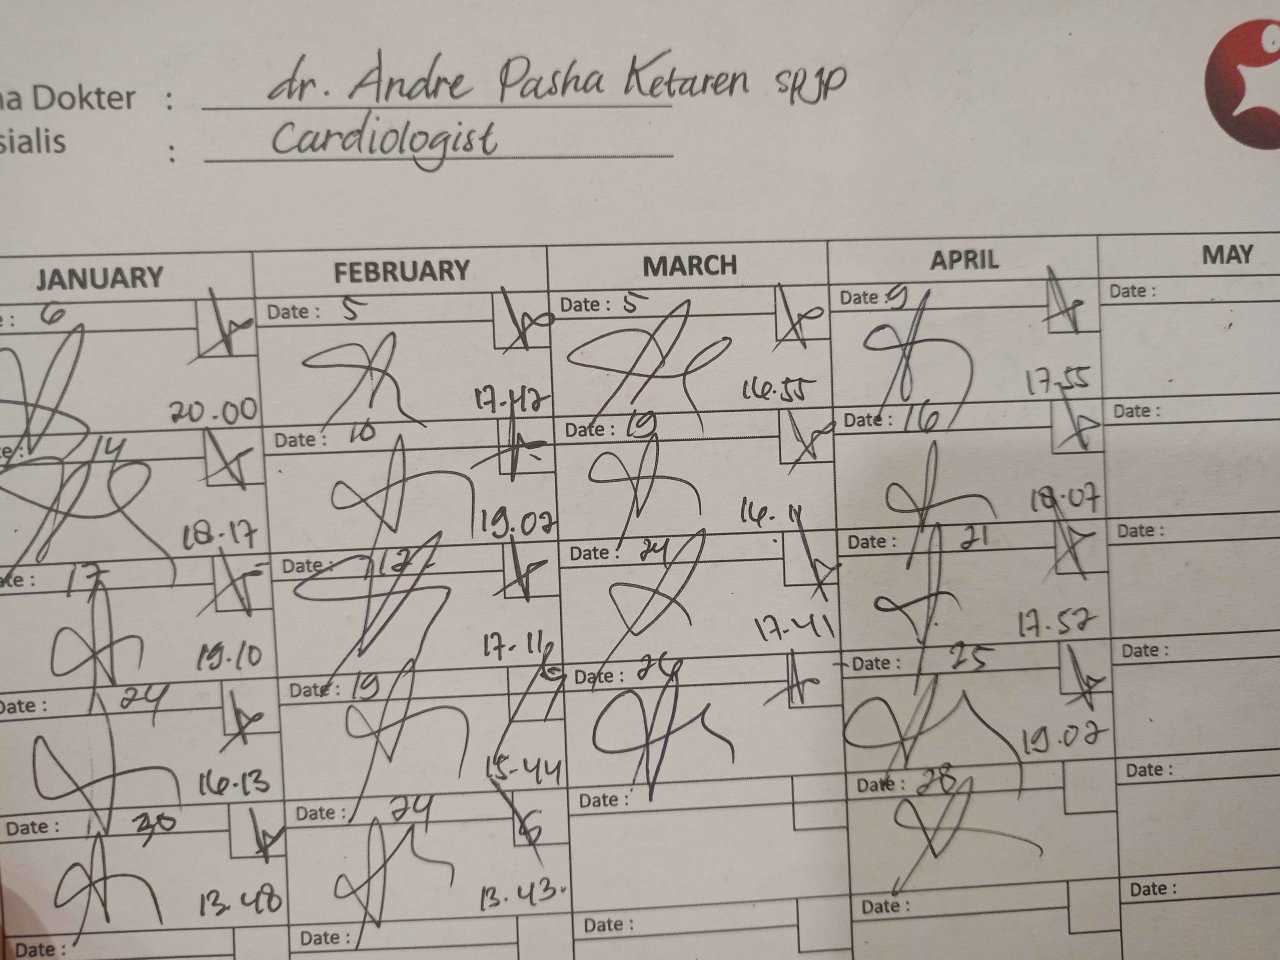 a Dokter : dr. Andre Pasha Ketaren SPJP
sialis : Cardiologist
JANUARY FEBRUARY MARCH APRIL MAY
: 6 Date : 5 Date : 5 Date : 9 Date :
20.00 17.42 16.55 17.55
: 14 Date : 10 Date : 19 Date : 16 Date :
18.17 19.02 16.11 18.07
te : 17 Date : 12 Date : 24 Date : 21 Date :
19.10 17.11 17.41 17.52
Date : 24 Date : 19 Date : 26 Date : 25 Date :
16.13 15.44 19.02
Date : 30 Date : 24 Date : Date : 28 Date :
13.48 13.43.
Date : Date : Date : Date : Date :